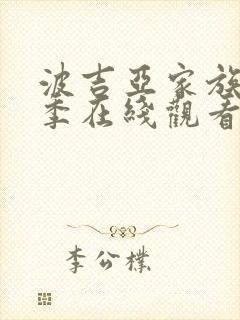 波吉亞家族
季在綫觀看
李公樸